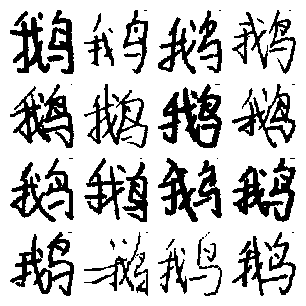 鹅鹅鹅鹅
鹅鹅鹅鹅
鹅鹅鹅鹅
鹅鹅鹅鹅